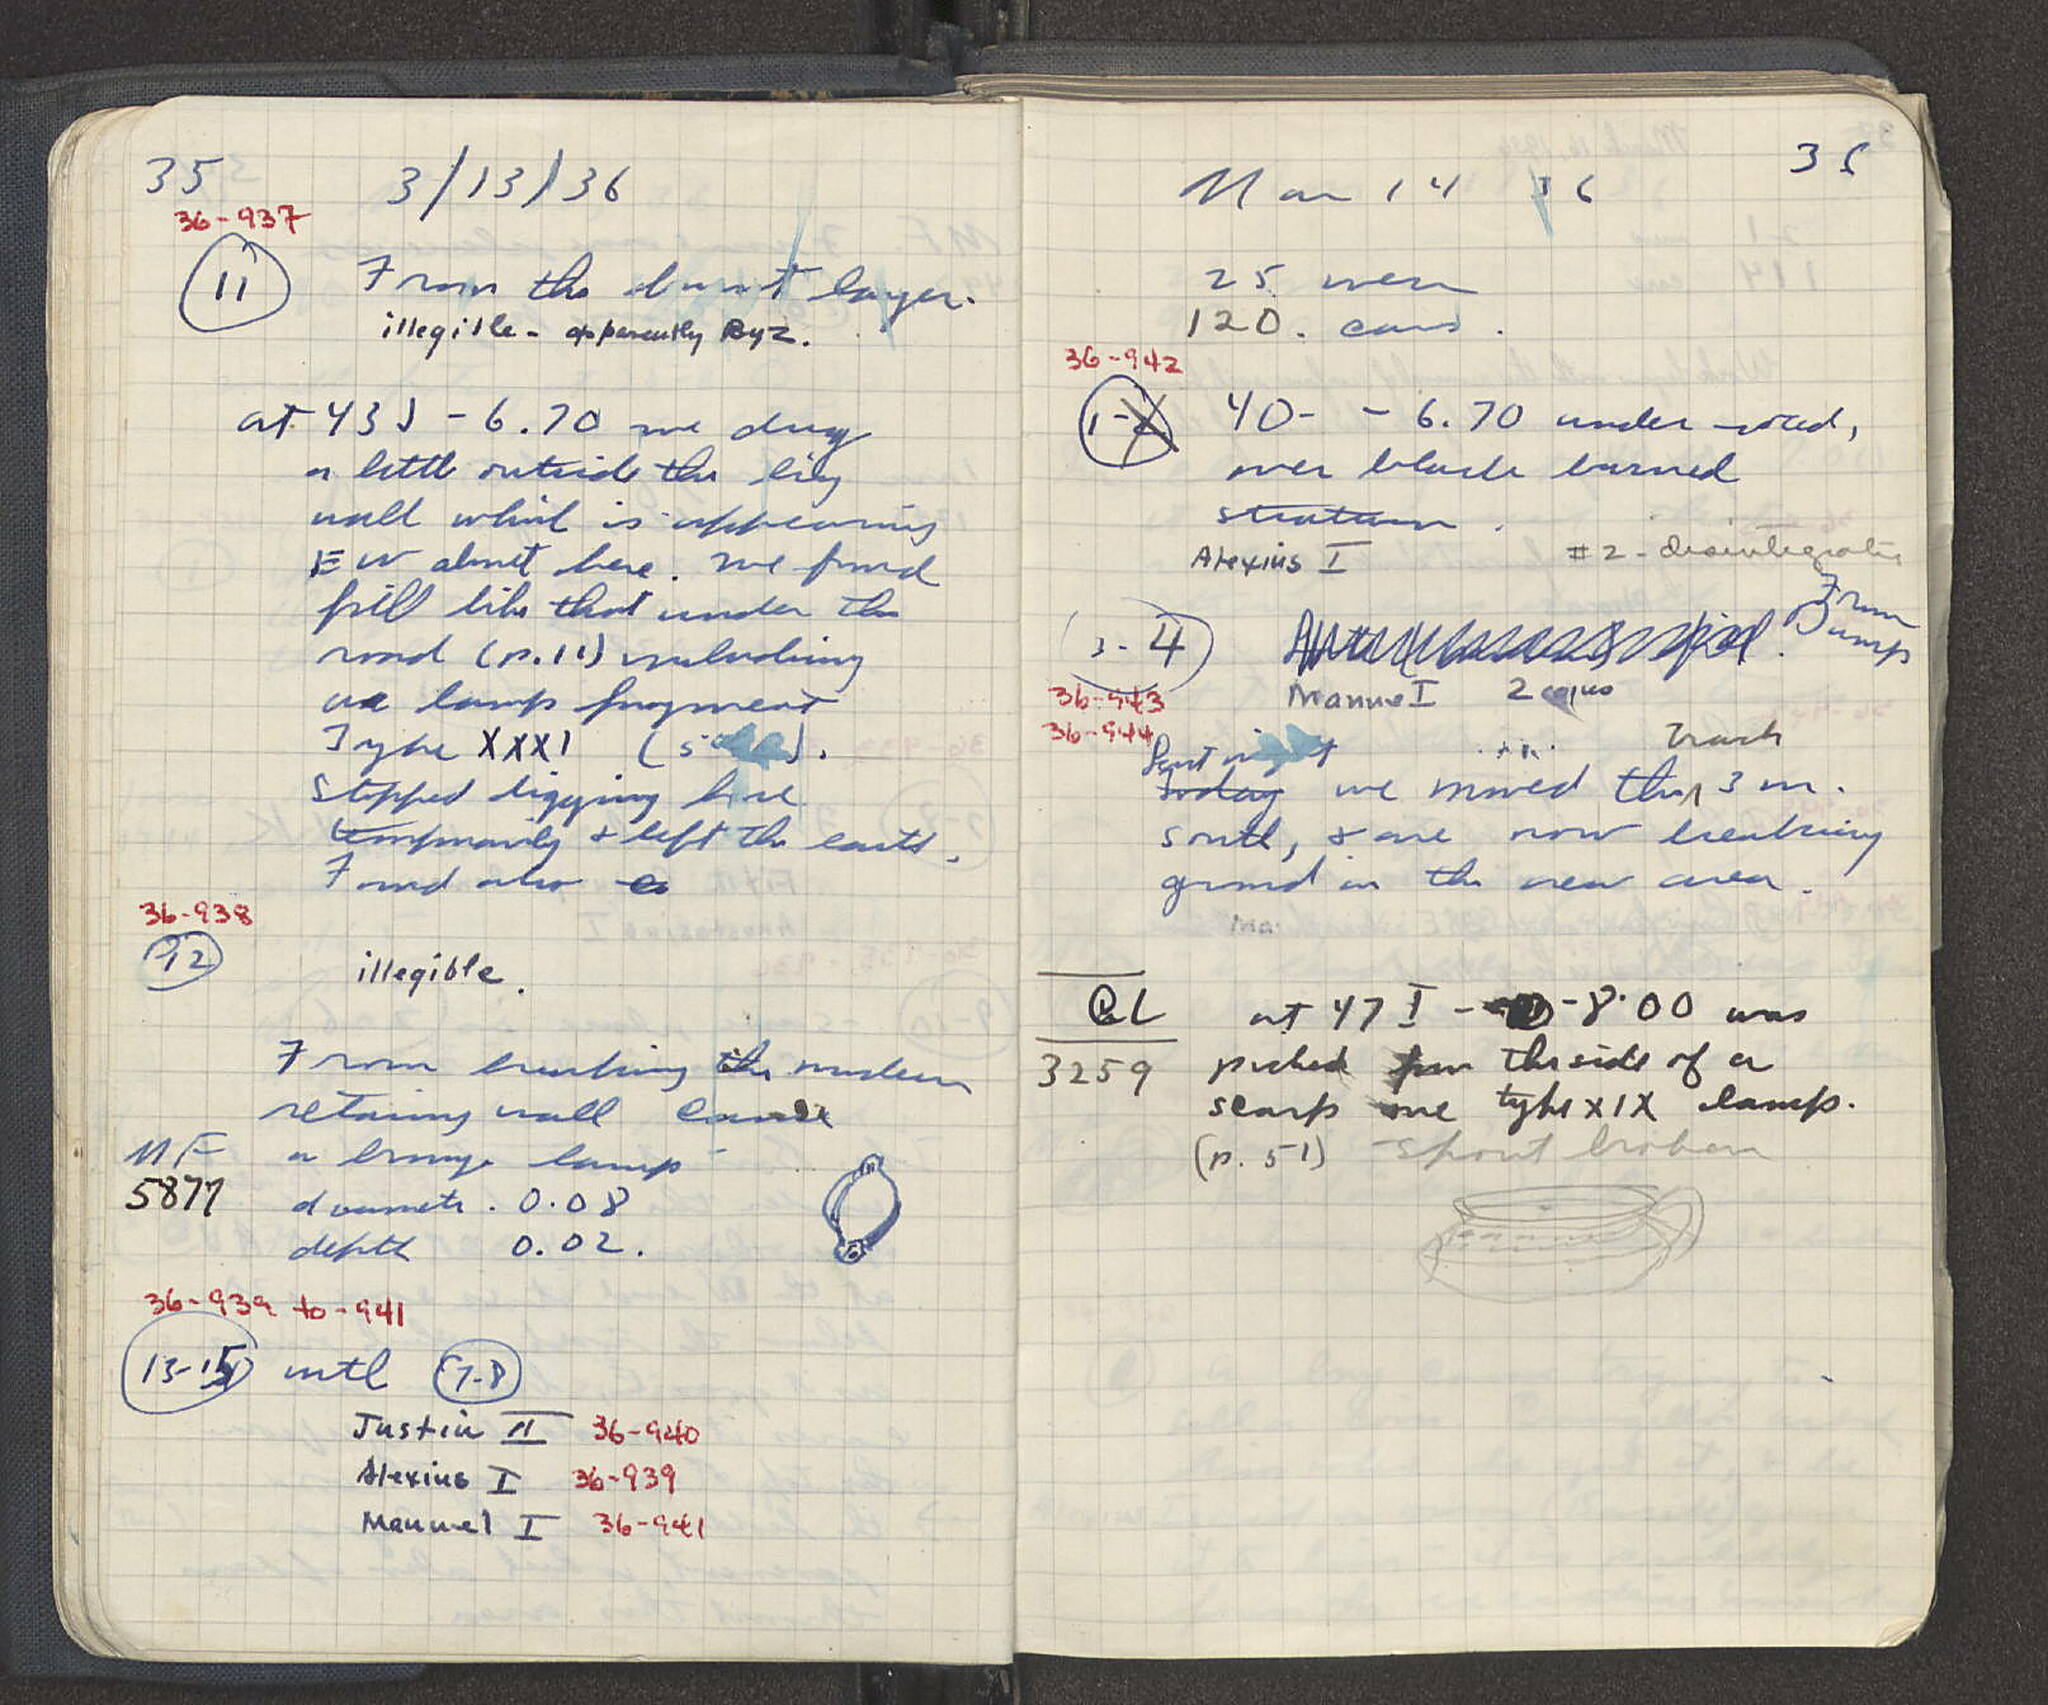 35 3/13/36
36-937
11 From the burnt layer.
illegible - apparently Byz.
at 43J - 6.70 we dug
a little outside the big
wall which is appearing
EW about here. We found
fill like that under the
road (p. 11) including
one lamp fragment
Type XXXI
Stopped digging here
temporarily & left the earth.
Found also
36-938
12
illegible.
From breaking the modern
retaining wall came
MF a bronze lamp
5877 diameter. 0.08
depth 0.02.
36-939 to -941
13-15 until 7-8
Justin II 36-940
Alexius I 36-939
Manuel I 36-941
35
Mar 14 36
25 men
120. cars.
36-942
1-2 40- - 6.70 under road,
over black burned
stratum.
Alexius I #2 - disintegrated
From
3-4 Dump
36-943 Manuel I 2 copies
36-944
Last night track
today we moved the 3 m.
south, & are now breaking
ground in the new area.
CL at 47 I - -8.00 was
3259 picked from the side of a
scarp one type XIX lamp.
(p. 51) - spout broken